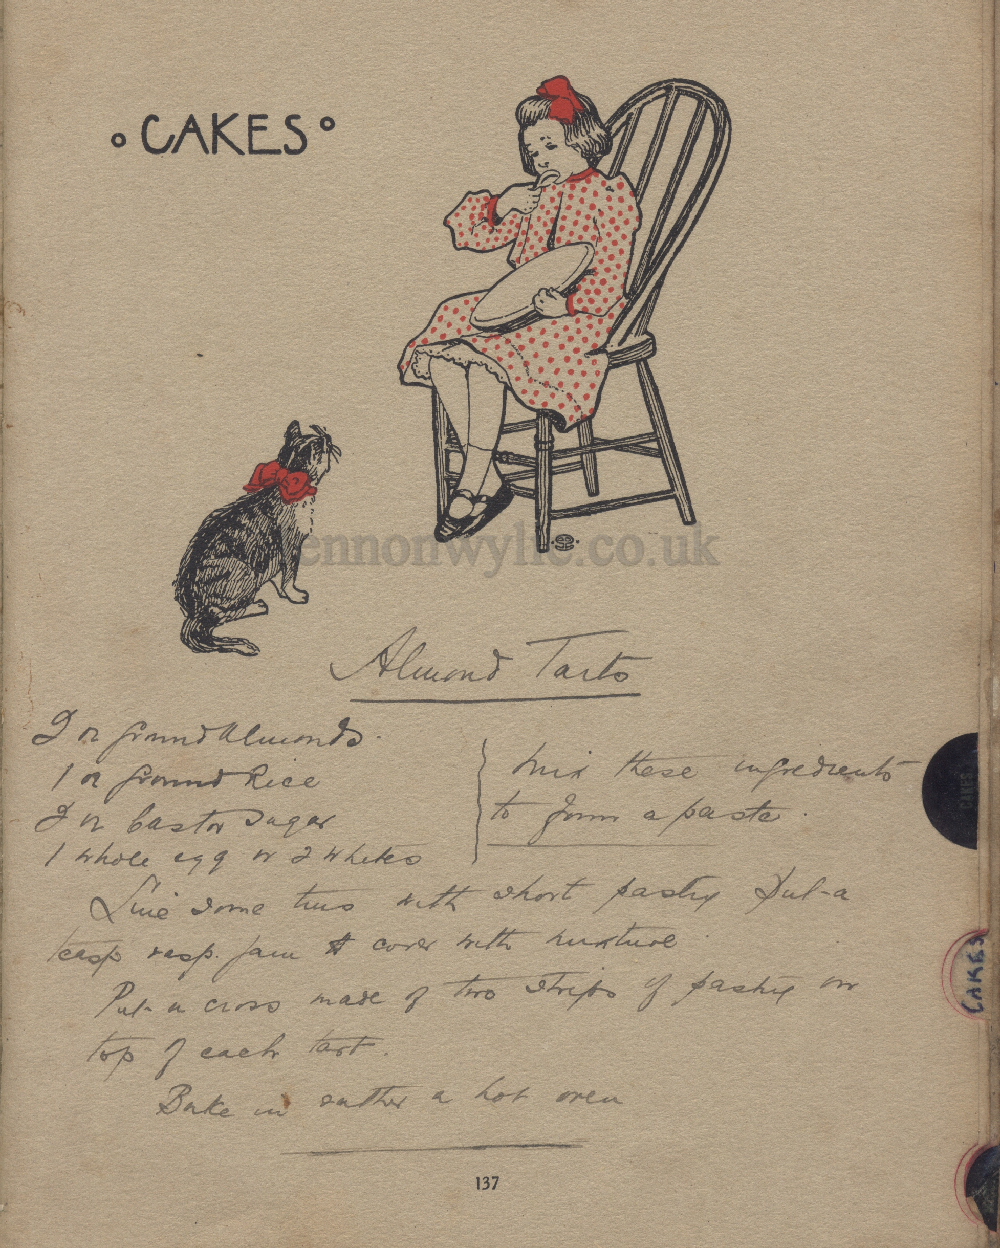 ° CAKES °
ennonwylie.co.uk
Almond Tarts
2 oz Ground Almonds
1 oz Ground Rice
2 oz Castor Sugar
1 whole egg or 2 whites
Mix these ingredients
to form a paste.
Line some tins with short pastry Put a
teasp rasp. jam & cover with mixture
Put a cross made of two strips of pastry on
top of each tart.
Bake in rather a hot oven
CAKES
CAKES
137